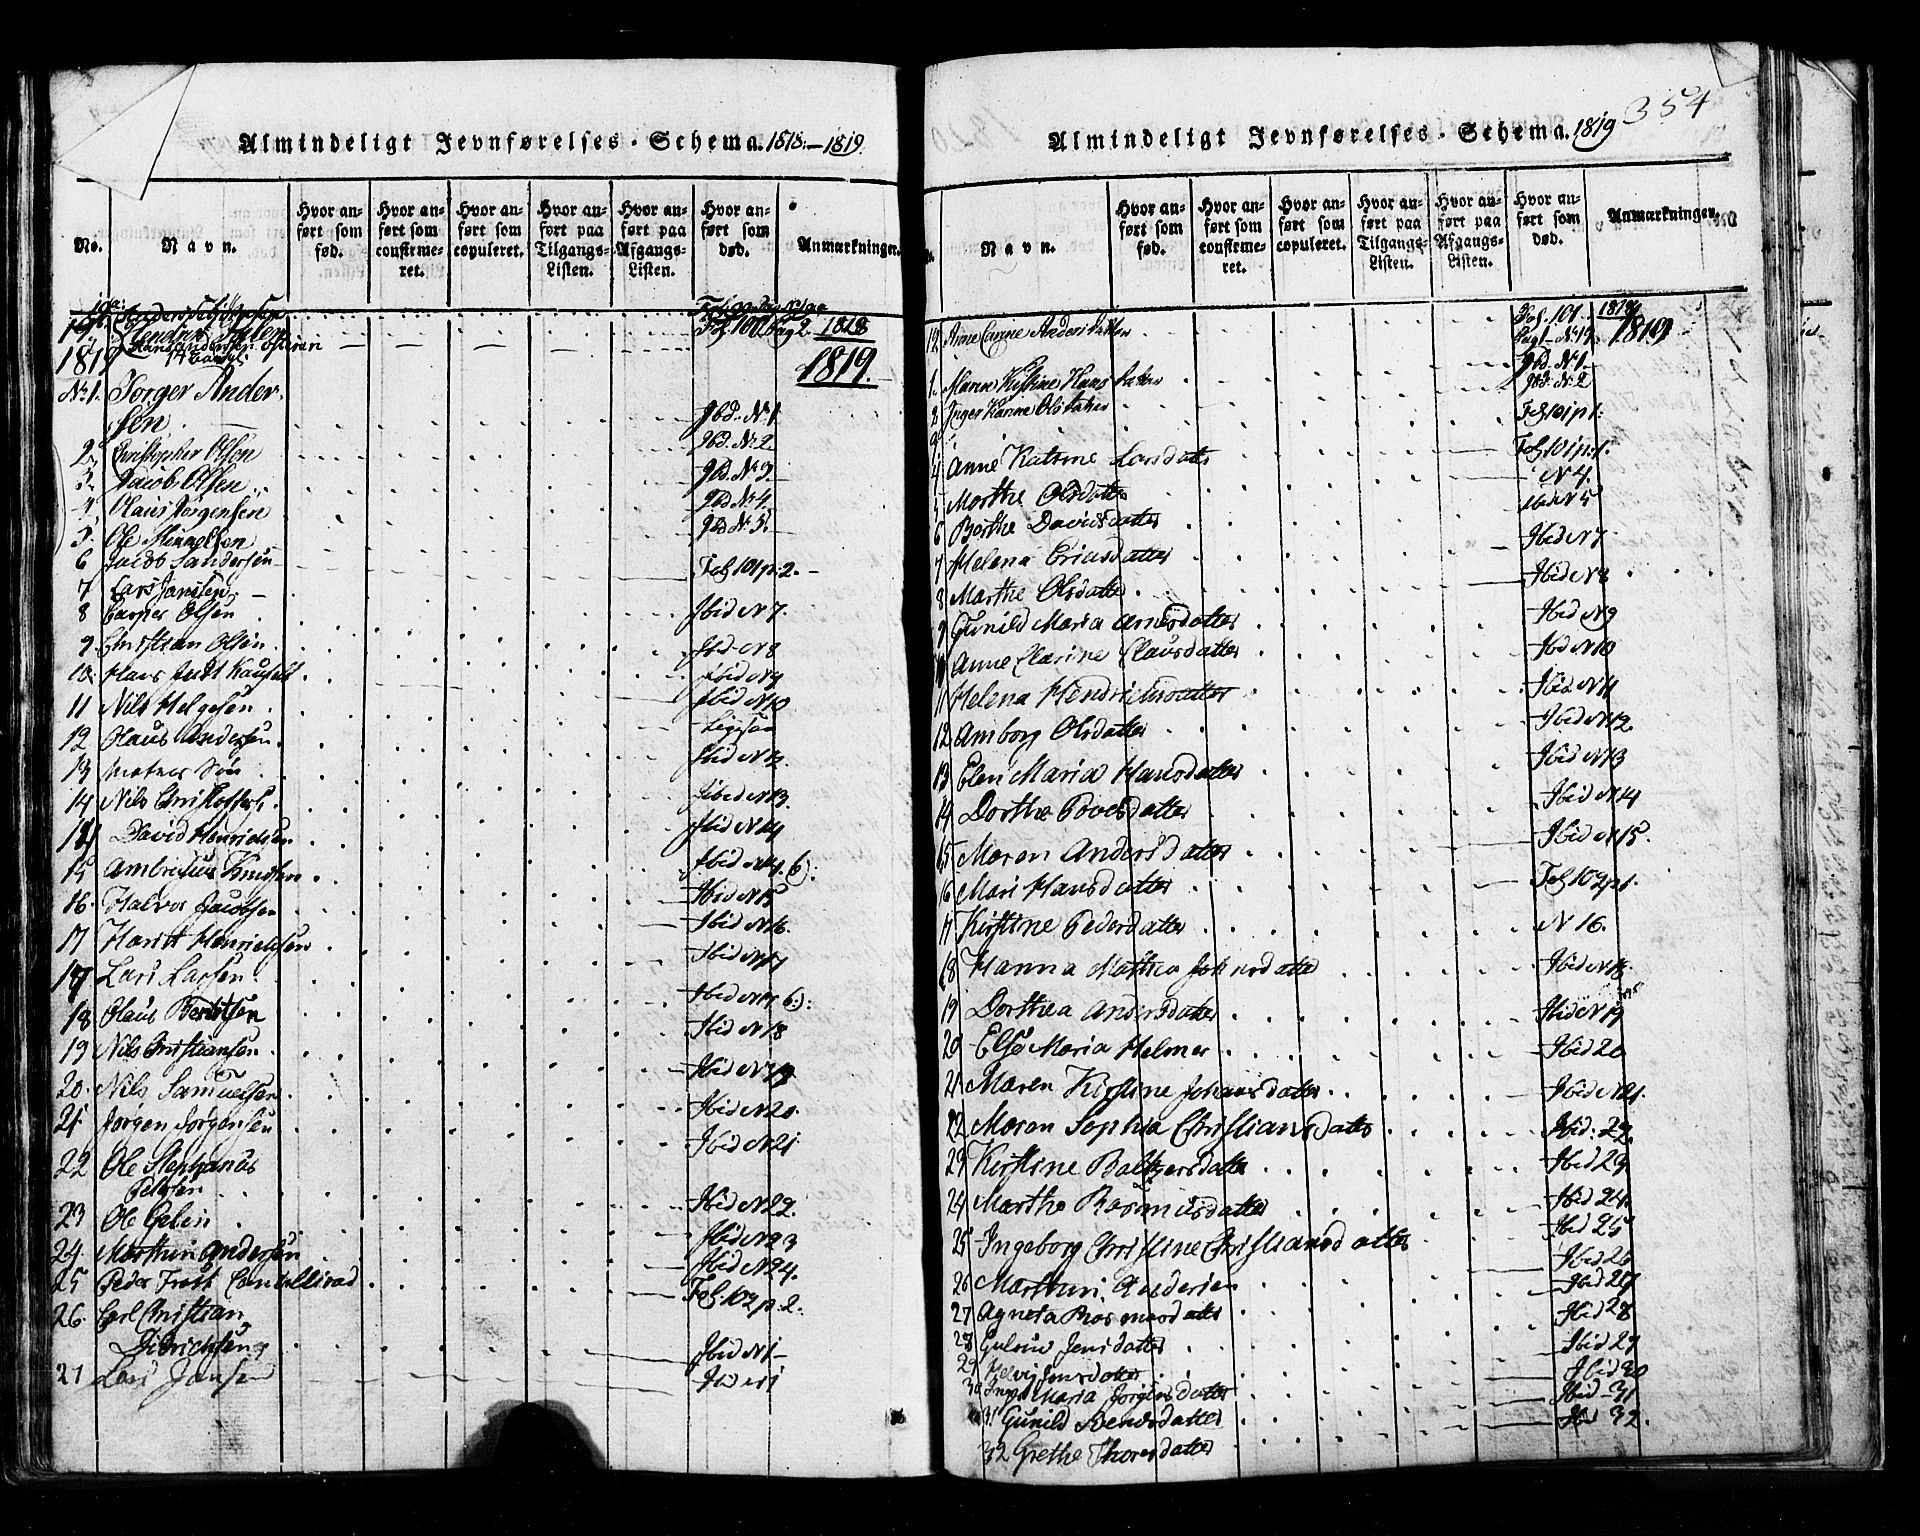 Almindeligt Jevnførelses-Schema. 1818.—1819.
No.
Navn.
Hvor anført som fød.
Hvor anført som confirmeret.
Hvor anført som copuleret.
Hvor anført paa Tilgangs-Listen.
Hvor anført paa Afgangs-Listen.
Hvor anført som død.
Anmarkninger.
Fol. 100 pag 2. 1818
1819 1819.
No 1. Jørger Ander-
sen Ibd. No. 1
2. Christopher Olsen Ibd. No. 2
3. Jacob Olsen Ibd. No. 3
4 Claus Jørgensen Ibd No. 4
5. Ole Ibd No. 5.
6 Jacob Sandersen Fol 101 p. 2.
7 Lars Jansen
8 Casper Olsen Ibid N 7.
9. Christian Olsen Ibid N 8
10. Hans Ibid N 9
11 Nils Helgesen Ibid N 10
12 Claus Andersen
13 Søn Ibid N 12.
14 Nils Christoffers. Ibid N 13.
14 David Henrichsen Ibid N 14
15 Ambrosius Knudsen Ibid N 14. b):
16. Halvor Jacobsen Ibid N 15
17 Henrichsen Ibid N 16.
17 Lars Larsen Ibid N 17
18 Claus Berntsen Ibid N 17 b):
19 Nils Christiansen Ibid N 18
20. Nils Samuelsen Ibid N 19
21. Jørgen Jørgensen Ibid N 20.
22 Ole Stephanus Ibid N 21
23 Ole Ibid N 22.
24. Andersen Ibid N 23
25 Peder Ibid N 24.
26. Carl Christian Fol. 102 p. 2.
Didrichsen Ibid N 1
27 Lars Jansen
354
Almindeligt Jevnførelses-Schema. 1819
Navn.
Hvor anført som fød.
Hvor anført som confirmeret.
Hvor anført som copuleret.
Hvor anført paa Tilgangs-Listen.
Hvor anført paa Afgangs-Listen.
Hvor anført som død.
Anmarkninger.
12 Anne Carine Andersdatter Fol. 101. Pag 1 No 19 1818
1819
1. Maren Kirstine Hansdatter Ibd. No. 1
2 Inger Karine Olsdatter Ibd. No. 2
3 Fol 101 p 1.
4 Anne Katrine Larsdatter Fol 101 p. 1.
5 Marthe Olsdatter N 4.
6 Berthe Davidsdatter Ibid N 5
7 Helena Eriasdatter Ibid N 7
8 Marthe Olsdatter Ibid N 8
9 Gunild Maria Arnesdatter Ibid N 9
10 Anne Clarine Clausdatter Ibid N 10
11 Helena Hendrichsdatter Ibid N 11
12 Amborg Olsdatter Ibid N 12.
13 Elen Maria Hansdatter Ibid N 13
14 Dorthe Povelsdatter Ibid N 14
15 Maren Andersdatter Ibid N 15.
16 Mari Hansdatter Fol 102 p 1.
17 Kirstine Pedersdatter N 16.
18 Hanna Mathea Johnsdatter Ibid N 18.
19 Dorthea Andersdatter Ibid N 19
20 Else Maria Helmer Ibid 20
21 Maren Kirstine Johansdatter Ibid N 21.
22 Maren Sophia Christiansdatter Ibid: 22.
23 Kirstine Baltzersdatter Ibid 23
24 Marthe Rasmusdatter Ibid 24.
25 Ingeborg Christine Christiansdatter Ibid 25
26 Andersen Ibid 26
27 Agneta Rasmusdatter Ibid 27
28 Jensdatter Ibid 28
29 Helvig Jensdatter Ibid 29
30 Maria Jørgensdatter Ibid 30
31 Gunild Svensdatter Ibid 31
32 Grethe Thoresdatter Ibid 32.